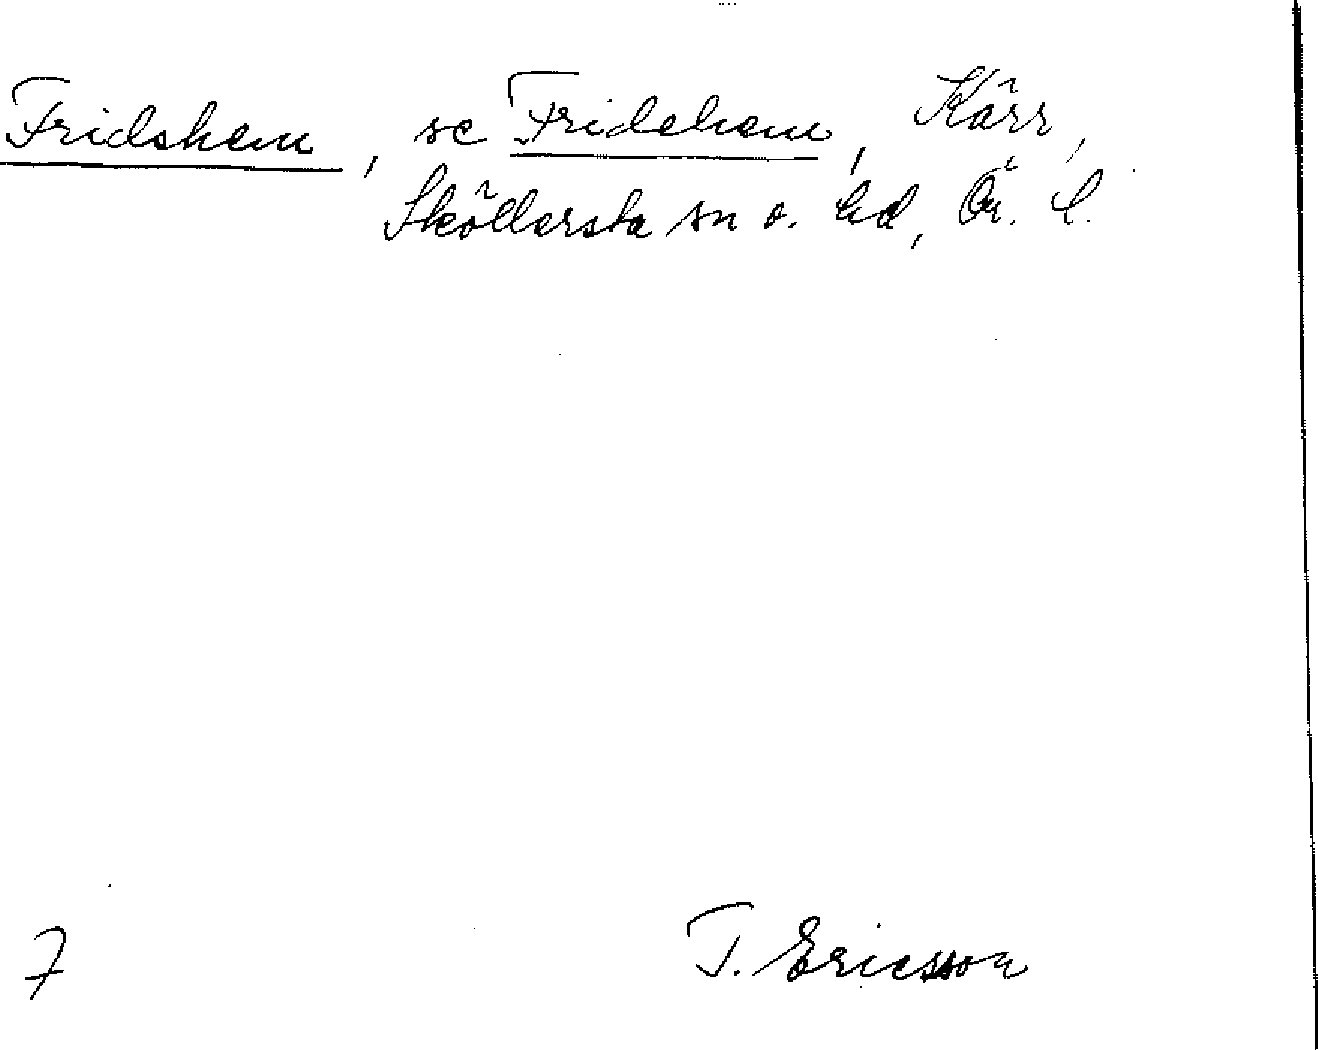 Fridshem, se Fridehem, Kärr,
Sköllersta sn o. hd, Ör. l.
7
T. Ericsson